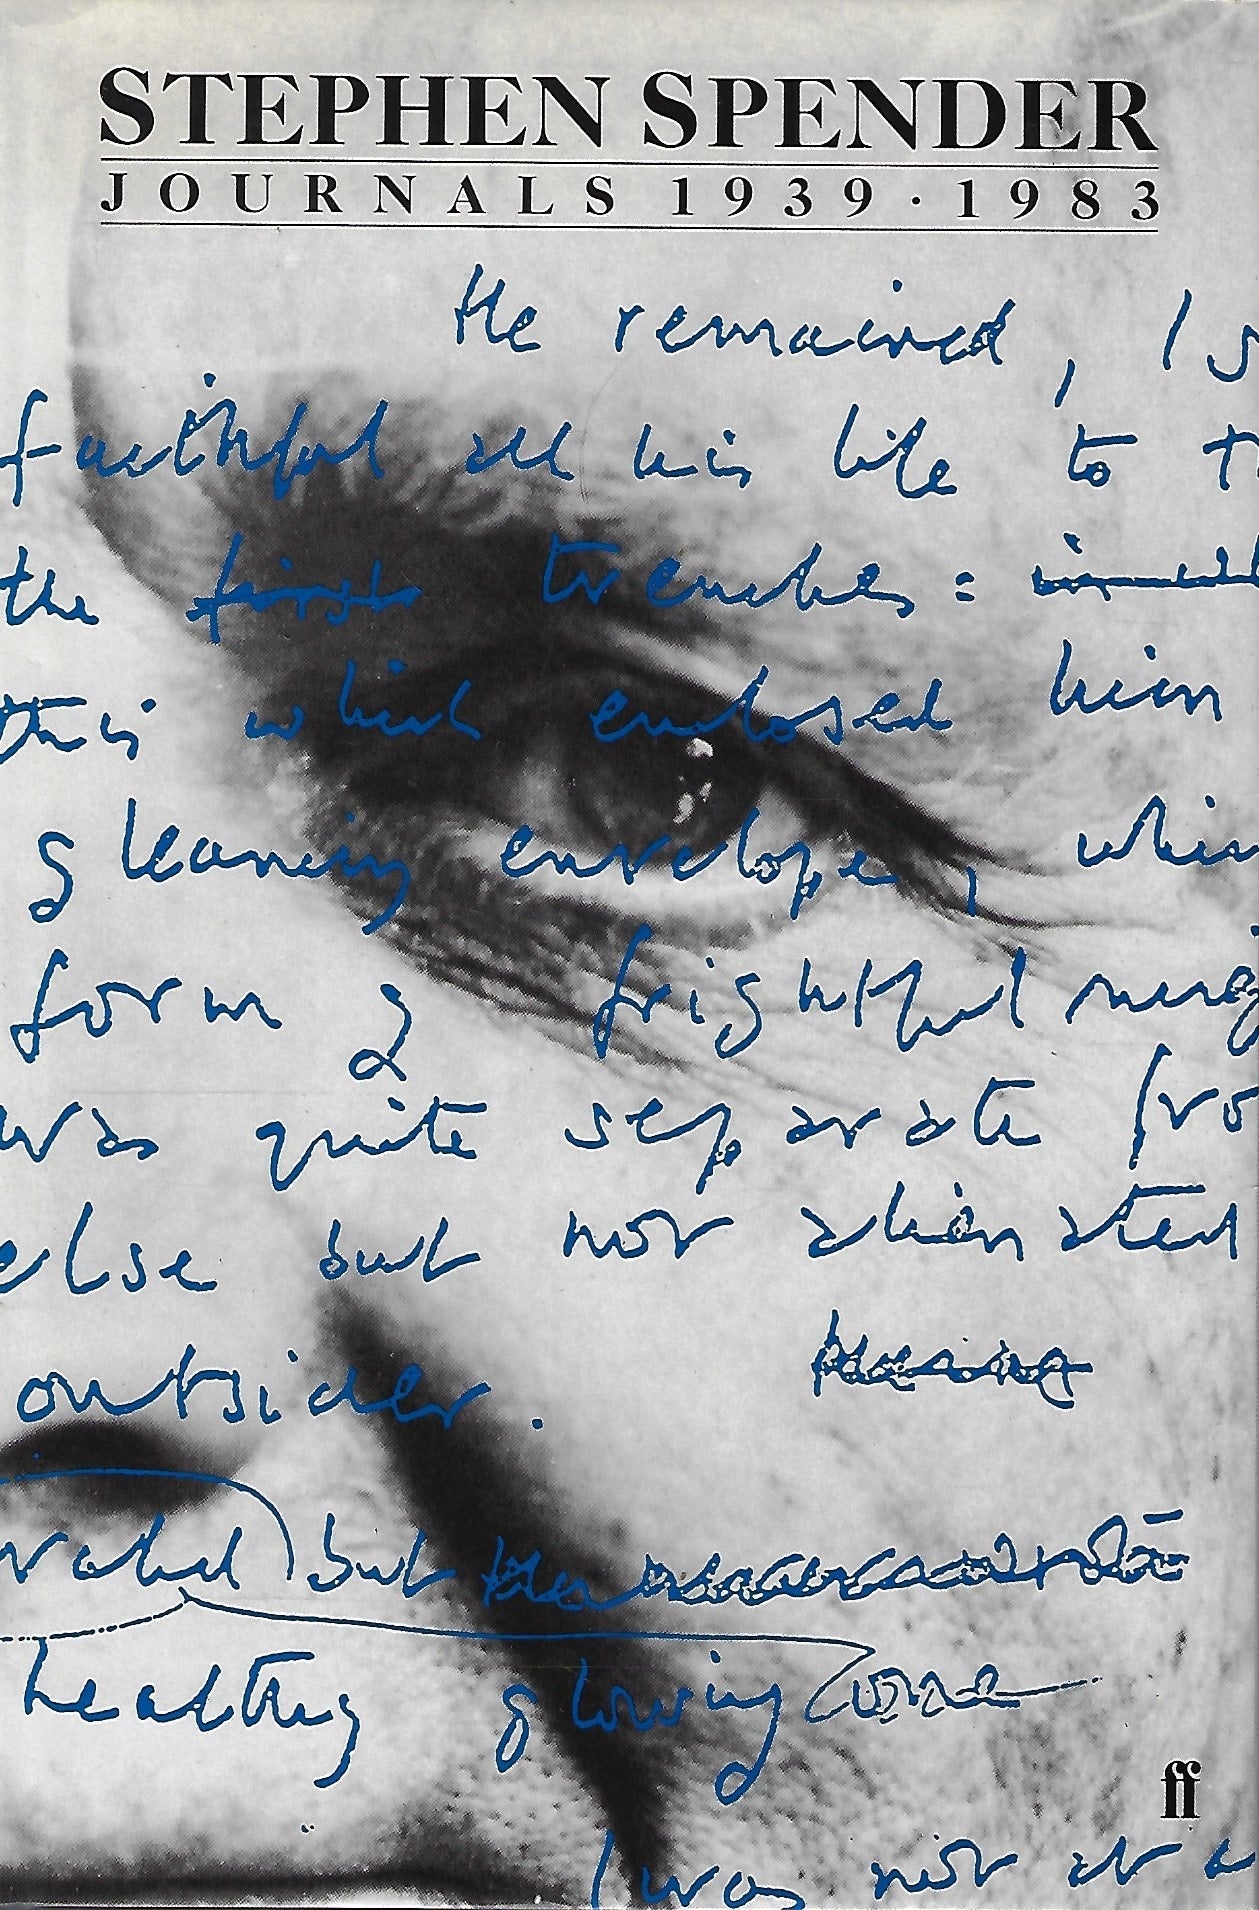 STEPHEN SPENDER
JOURNALS 1939·1983
He remained, I
faithful all his life to
the first trenches:
this which enclosed him
gleaming envelope,
form of frightful
was quite separate
else but not alienated
outsider.
but
healthy glowing
ff
I was not at a